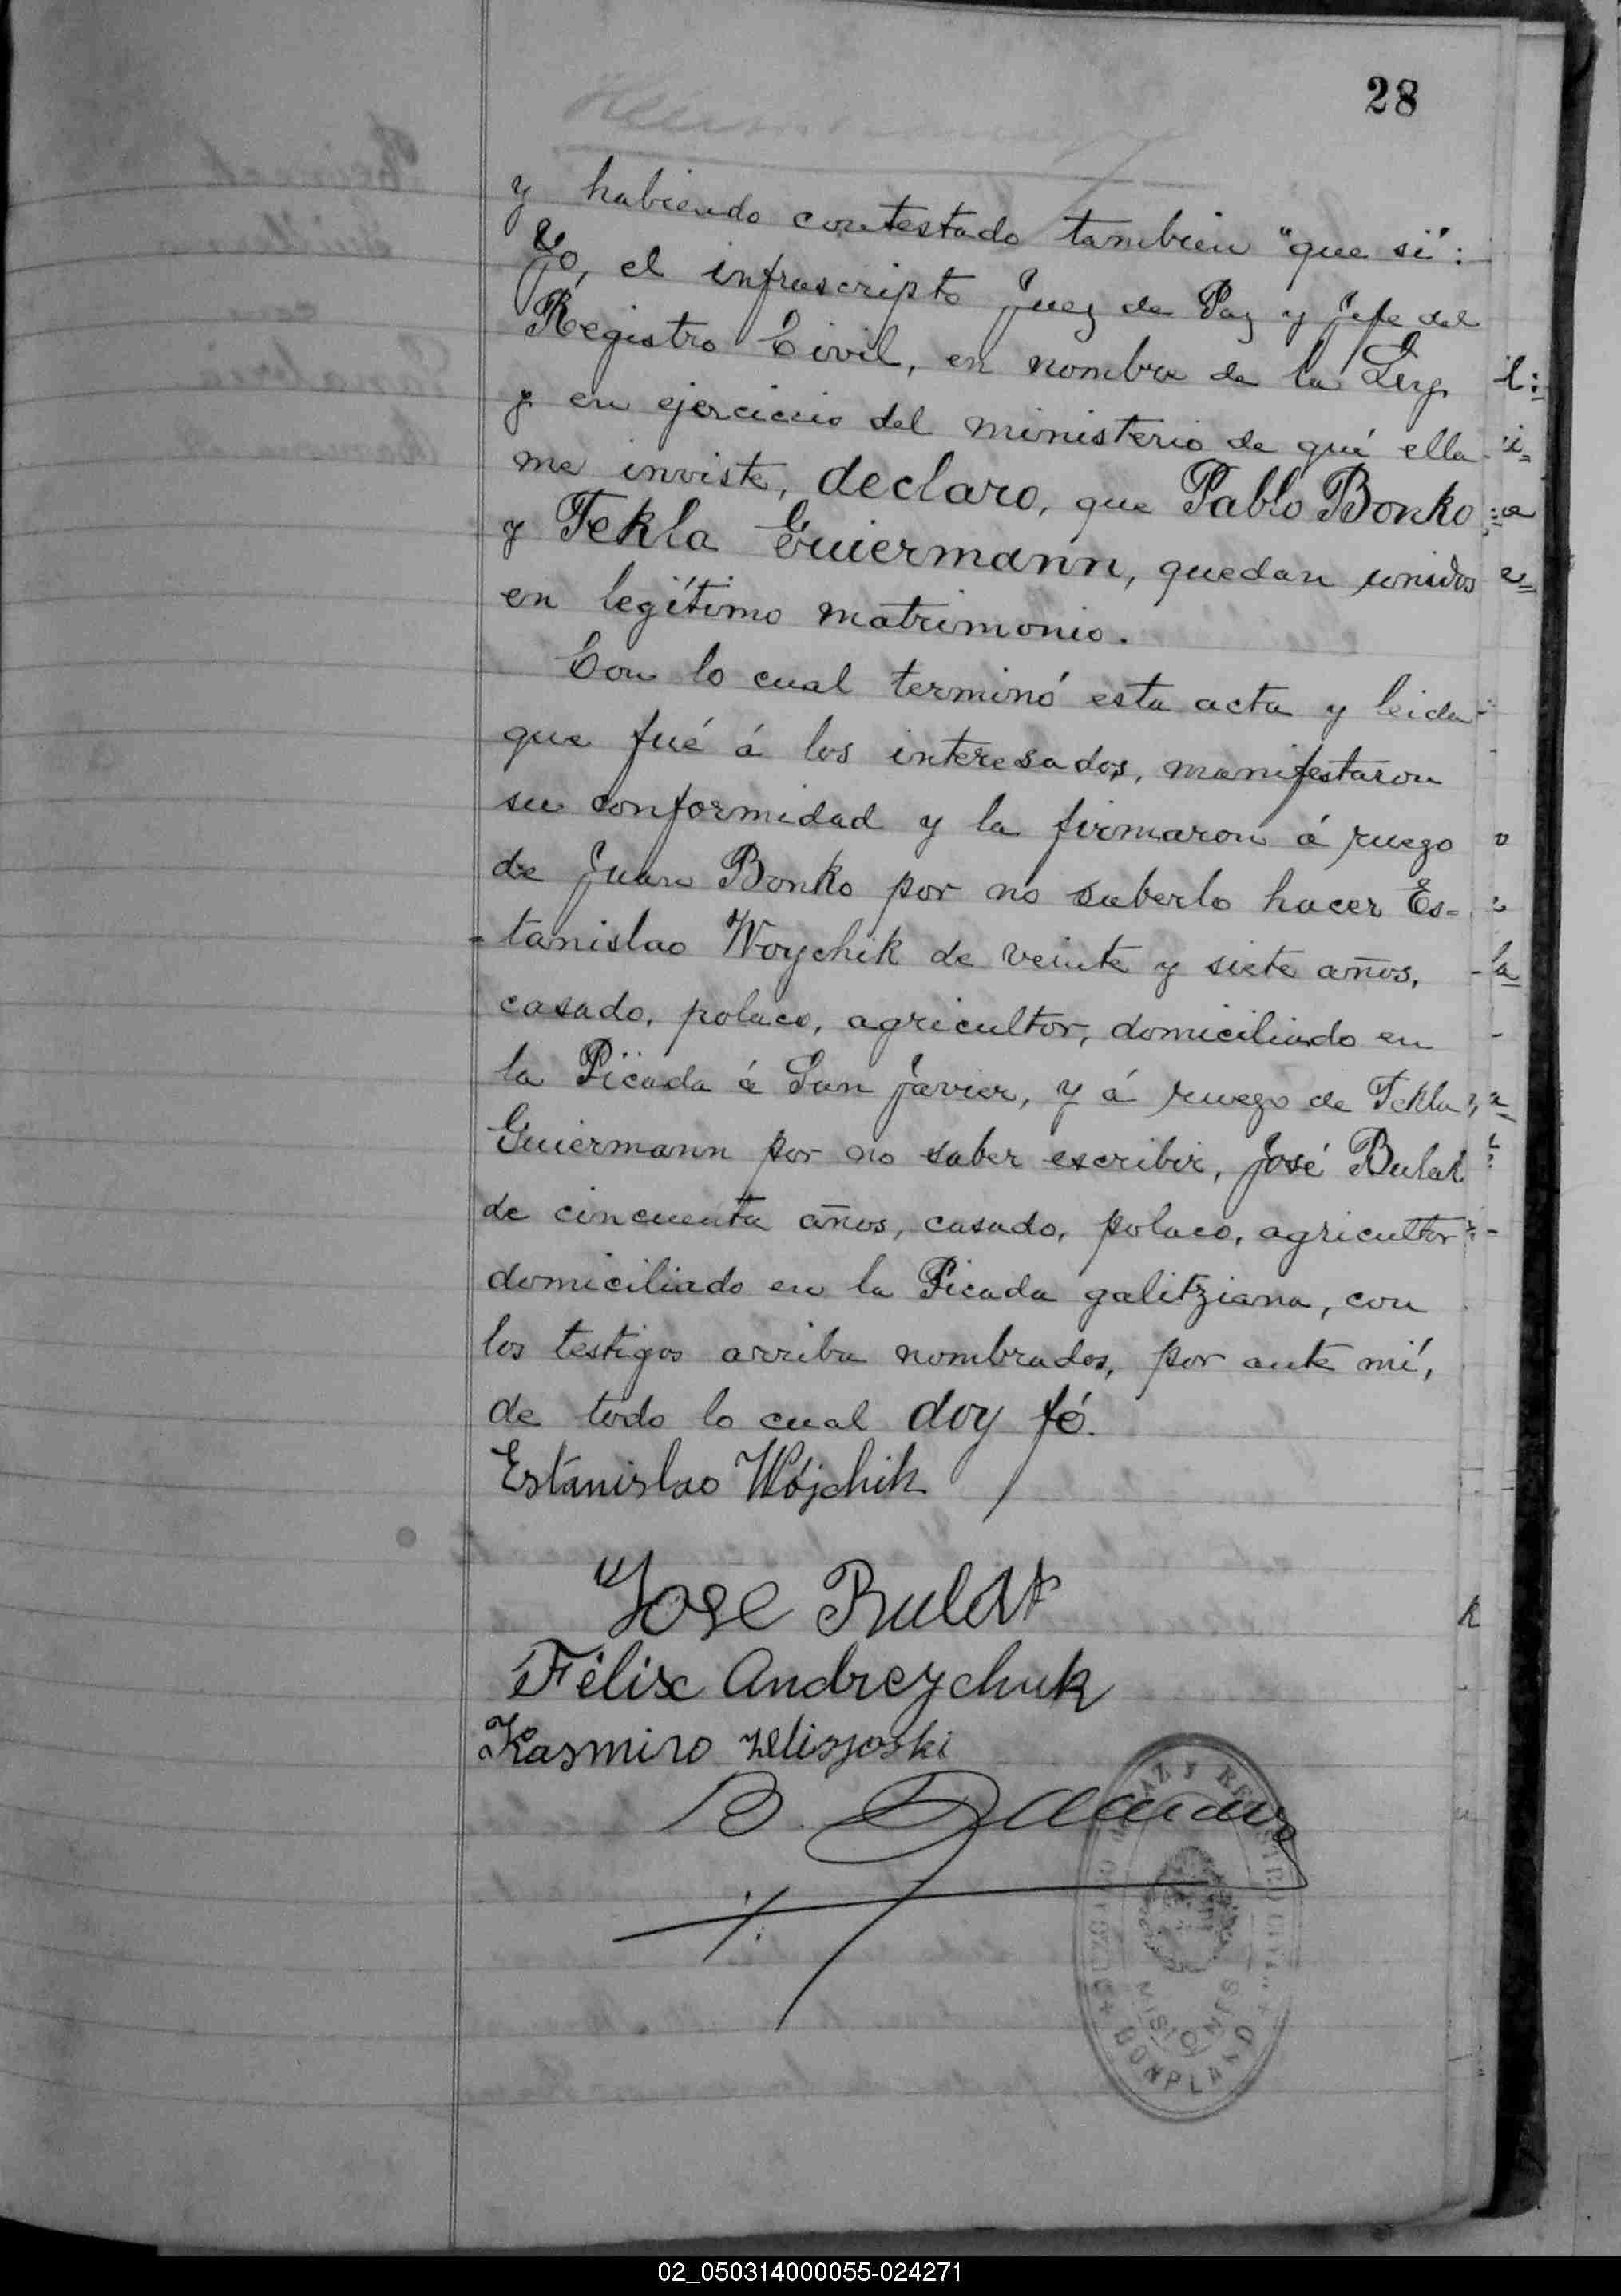 28
y habiendo contestado tambien "que si":
Yo, el infrascripto Juez de Paz y Jefe del
Registro Civil, en nombre de la Ley
y en ejercicio del ministerio de qué ella
me inviste, declaro, que Pablo Bonko
y Tekla Guiermann, quedan unidos
en legítimo matrimonio.
Con lo cual terminó esta acta y leida
que fué á los interesados, manifestaron
su conformidad y la firmaron á ruego
de Juan Bonko por no saberlo hacer Es=
=tanislao Woychik de veinte y siete años,
casado, polaco, agricultor, domiciliado en
la Picada á San Javier, y á ruego de Tekla
Guiermann por no saber escribir, José Bulak
de cincuenta años, casado, polaco, agricultor
domiciliado en la Picada galitziana, con
los testigos arriba nombrados, por ante mí,
de todo lo cual doy fé.
Estanislao Wójchik
Jose Bulak
Félix Andreychuk
Kasmiro
B.
JUZGADO DE PAZ Y REGISTRO CIVIL
MISIONES
BONPLAND
02_050314000055-024271